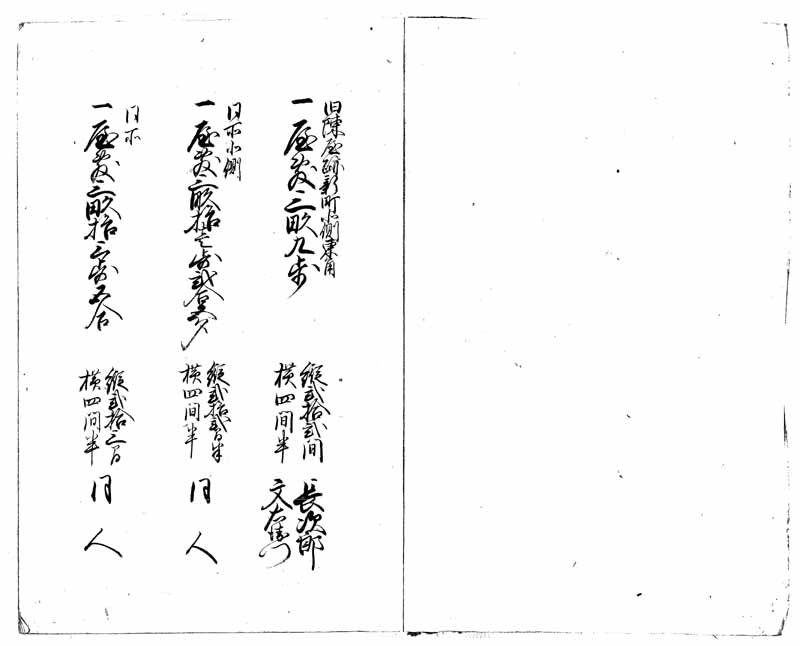 旧陳屋跡新町北側東角
一屋敷三畝九歩
縦弐拾弐間
横四間半
長次郎
文右衛門
同所北側
一屋敷三畝拾壱歩弐合五夕
縦弐拾弐間半
横四間半
同人
同所
一屋敷三畝拾三歩五合
縦弐拾三間
横四間半
同人